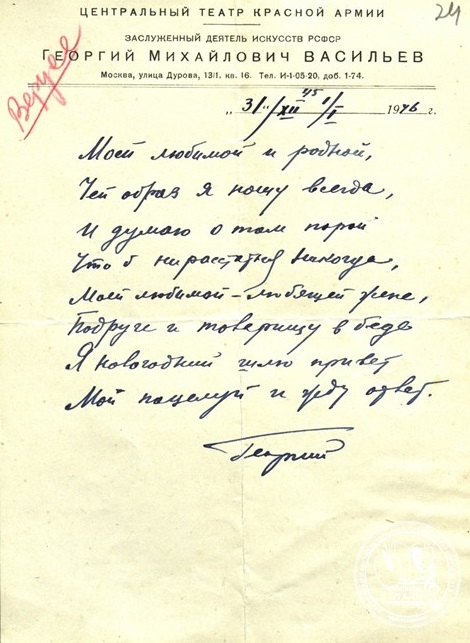 24
ЦЕНТРАЛЬНЫЙ ТЕАТР КРАСНОЙ АРМИИ
ЗАСЛУЖЕННЫЙ ДЕЯТЕЛЬ ИСКУССТВ РСФСР
ГЕОРГИЙ МИХАЙЛОВИЧ ВАСИЛЬЕВ
Москва, улица Дурова, 13/1, кв. 16. Тел. И-1-05-20, доб. 1-74.
„31"/XII 45 1/I 1946 г.
Моей любимой и родной,
Чей образ я ношу всегда,
И думаю о том порой
Что б не расстаться никогда,
Моей любимой – любящей жене,
Подруге и товарищу в беде
Я новогодний шлю привет
Мой поцелуй и жду ответ.
Георгий